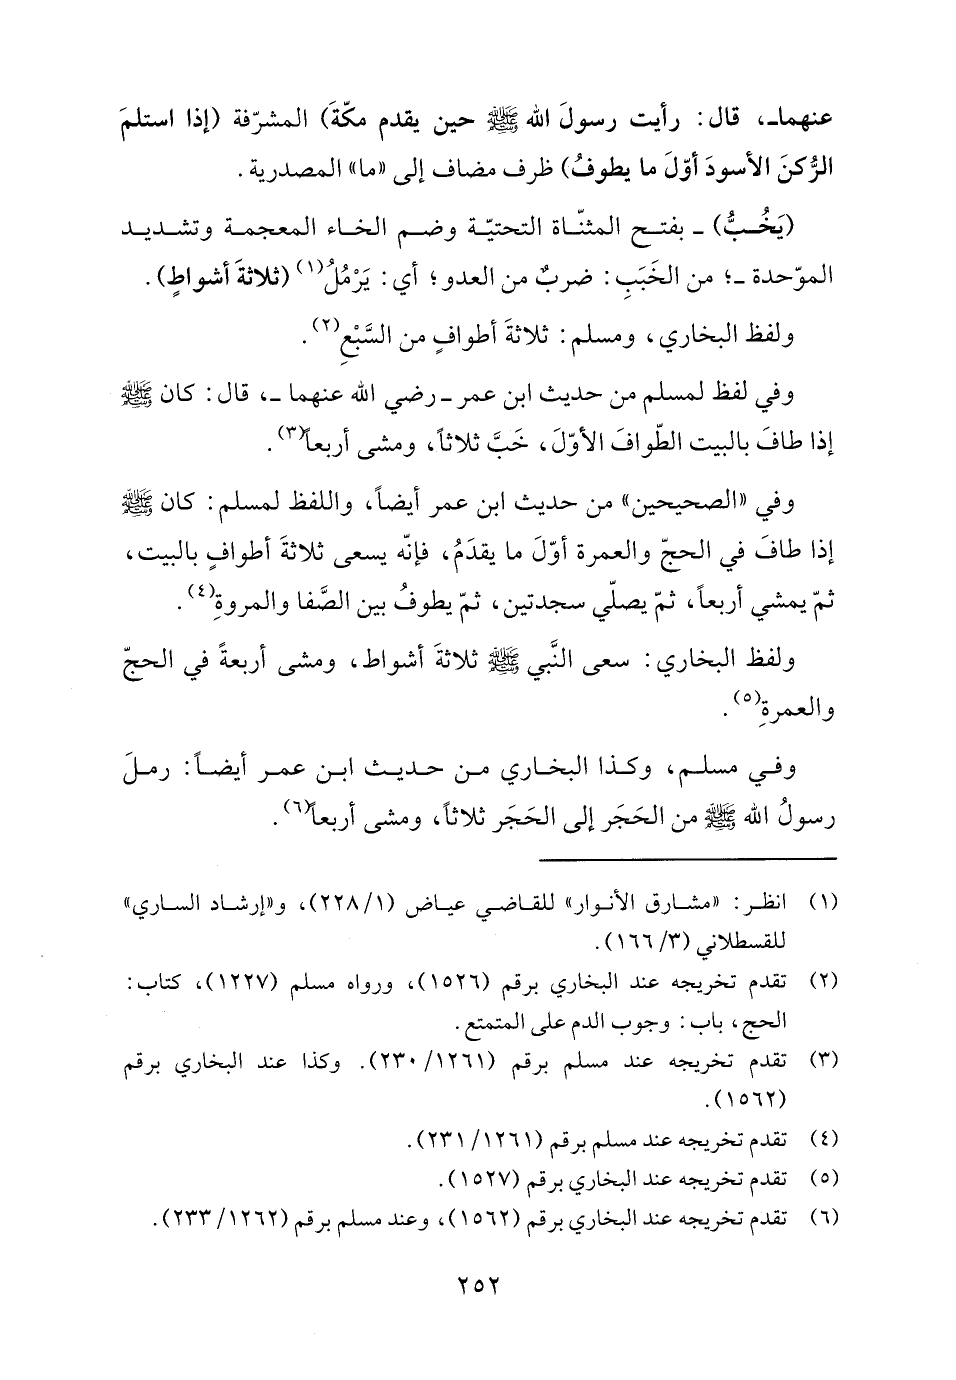 عنهما ـ، قال: رأيت رسولَ الله ﷺ حين يقدم مكّةَ) المشرّفة (إذا استلمَ
الرُّكنَ الأسودَ أوّلَ ما يطوفُ) ظرف مضاف إلى «ما» المصدرية.
(يَخُبُّ) ـ بفتح المثنّاة التحتيّة وضم الخاء المعجمة وتشديد
الموّحدة ـ؛ من الخَبَبِ: ضربٌ من العدو؛ أي: يَرْمُلُ(١) (ثلاثةَ أشواطٍ).
ولفظ البخاري، ومسلم: ثلاثةَ أطوافٍ من السَّبْعِ(٢).
وفي لفظ لمسلم من حديث ابن عمر ـ رضي الله عنهما ـ، قال: كان ﷺ
إذا طافَ بالبيت الطّوافَ الأوّلَ، خَبَّ ثلاثاً، ومشى أربعاً(٣).
وفي «الصحيحين» من حديث ابن عمر أيضاً، واللفظ لمسلم: كان ﷺ
إذا طافَ في الحجّ والعمرة أوّلَ ما يقدَمُ، فإنّه يسعى ثلاثةَ أطوافٍ بالبيت،
ثمّ يمشي أربعاً، ثمّ يصلّي سجدتين، ثمّ يطوفُ بين الصَّفا والمروةِ(٤).
ولفظ البخاري: سعى النَّبي ﷺ ثلاثةَ أشواط، ومشى أربعةً في الحجّ
والعمرةِ(٥).
وفي مسلم، وكذا البخاري من حديث ابن عمر أيضاً: رملَ
رسولُ الله ﷺ من الحَجَر إلى الحَجَر ثلاثاً، ومشى أربعاً(٦).
(١) انظر: «مشارق الأنوار» للقاضي عياض (١/ ٢٢٨)، و«إرشاد الساري»
للقسطلاني (٣/ ١٦٦).
(٢) تقدم تخريجه عند البخاري برقم (١٥٢٦)، ورواه مسلم (١٢٢٧)، كتاب:
الحج، باب: وجوب الدم على المتمتع.
(٣) تقدم تخريجه عند مسلم برقم (١٢٦١/ ٢٣٠). وكذا عند البخاري برقم
(١٥٦٢).
(٤) تقدم تخريجه عند مسلم برقم (١٢٦١/ ٢٣١).
(٥) تقدم تخريجه عند البخاري برقم (١٥٢٧).
(٦) تقدم تخريجه عند البخاري برقم (١٥٦٢)، وعند مسلم برقم (١٢٦٢/ ٢٣٣).
٢٥٢